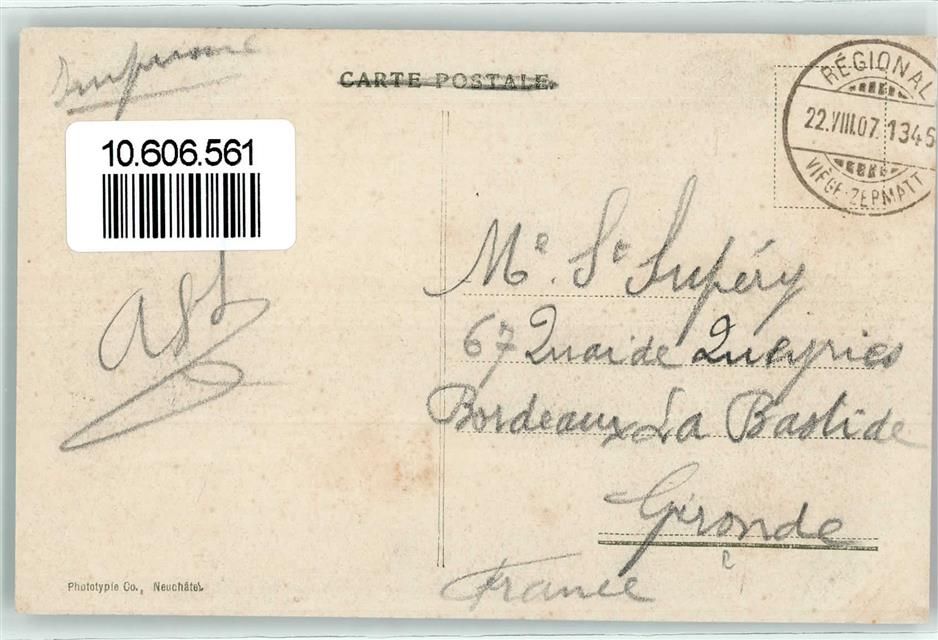 Imprimé
CARTE POSTALE.
RÉGIONAL
22.VIII.07.1345
VIÈGE-ZERMATT
10.606.561
Me. St Supéry
67 Quai de Queyries
Bordeaux La Bastide
Gironde
France
Phototypie Co., Neuchâtel.